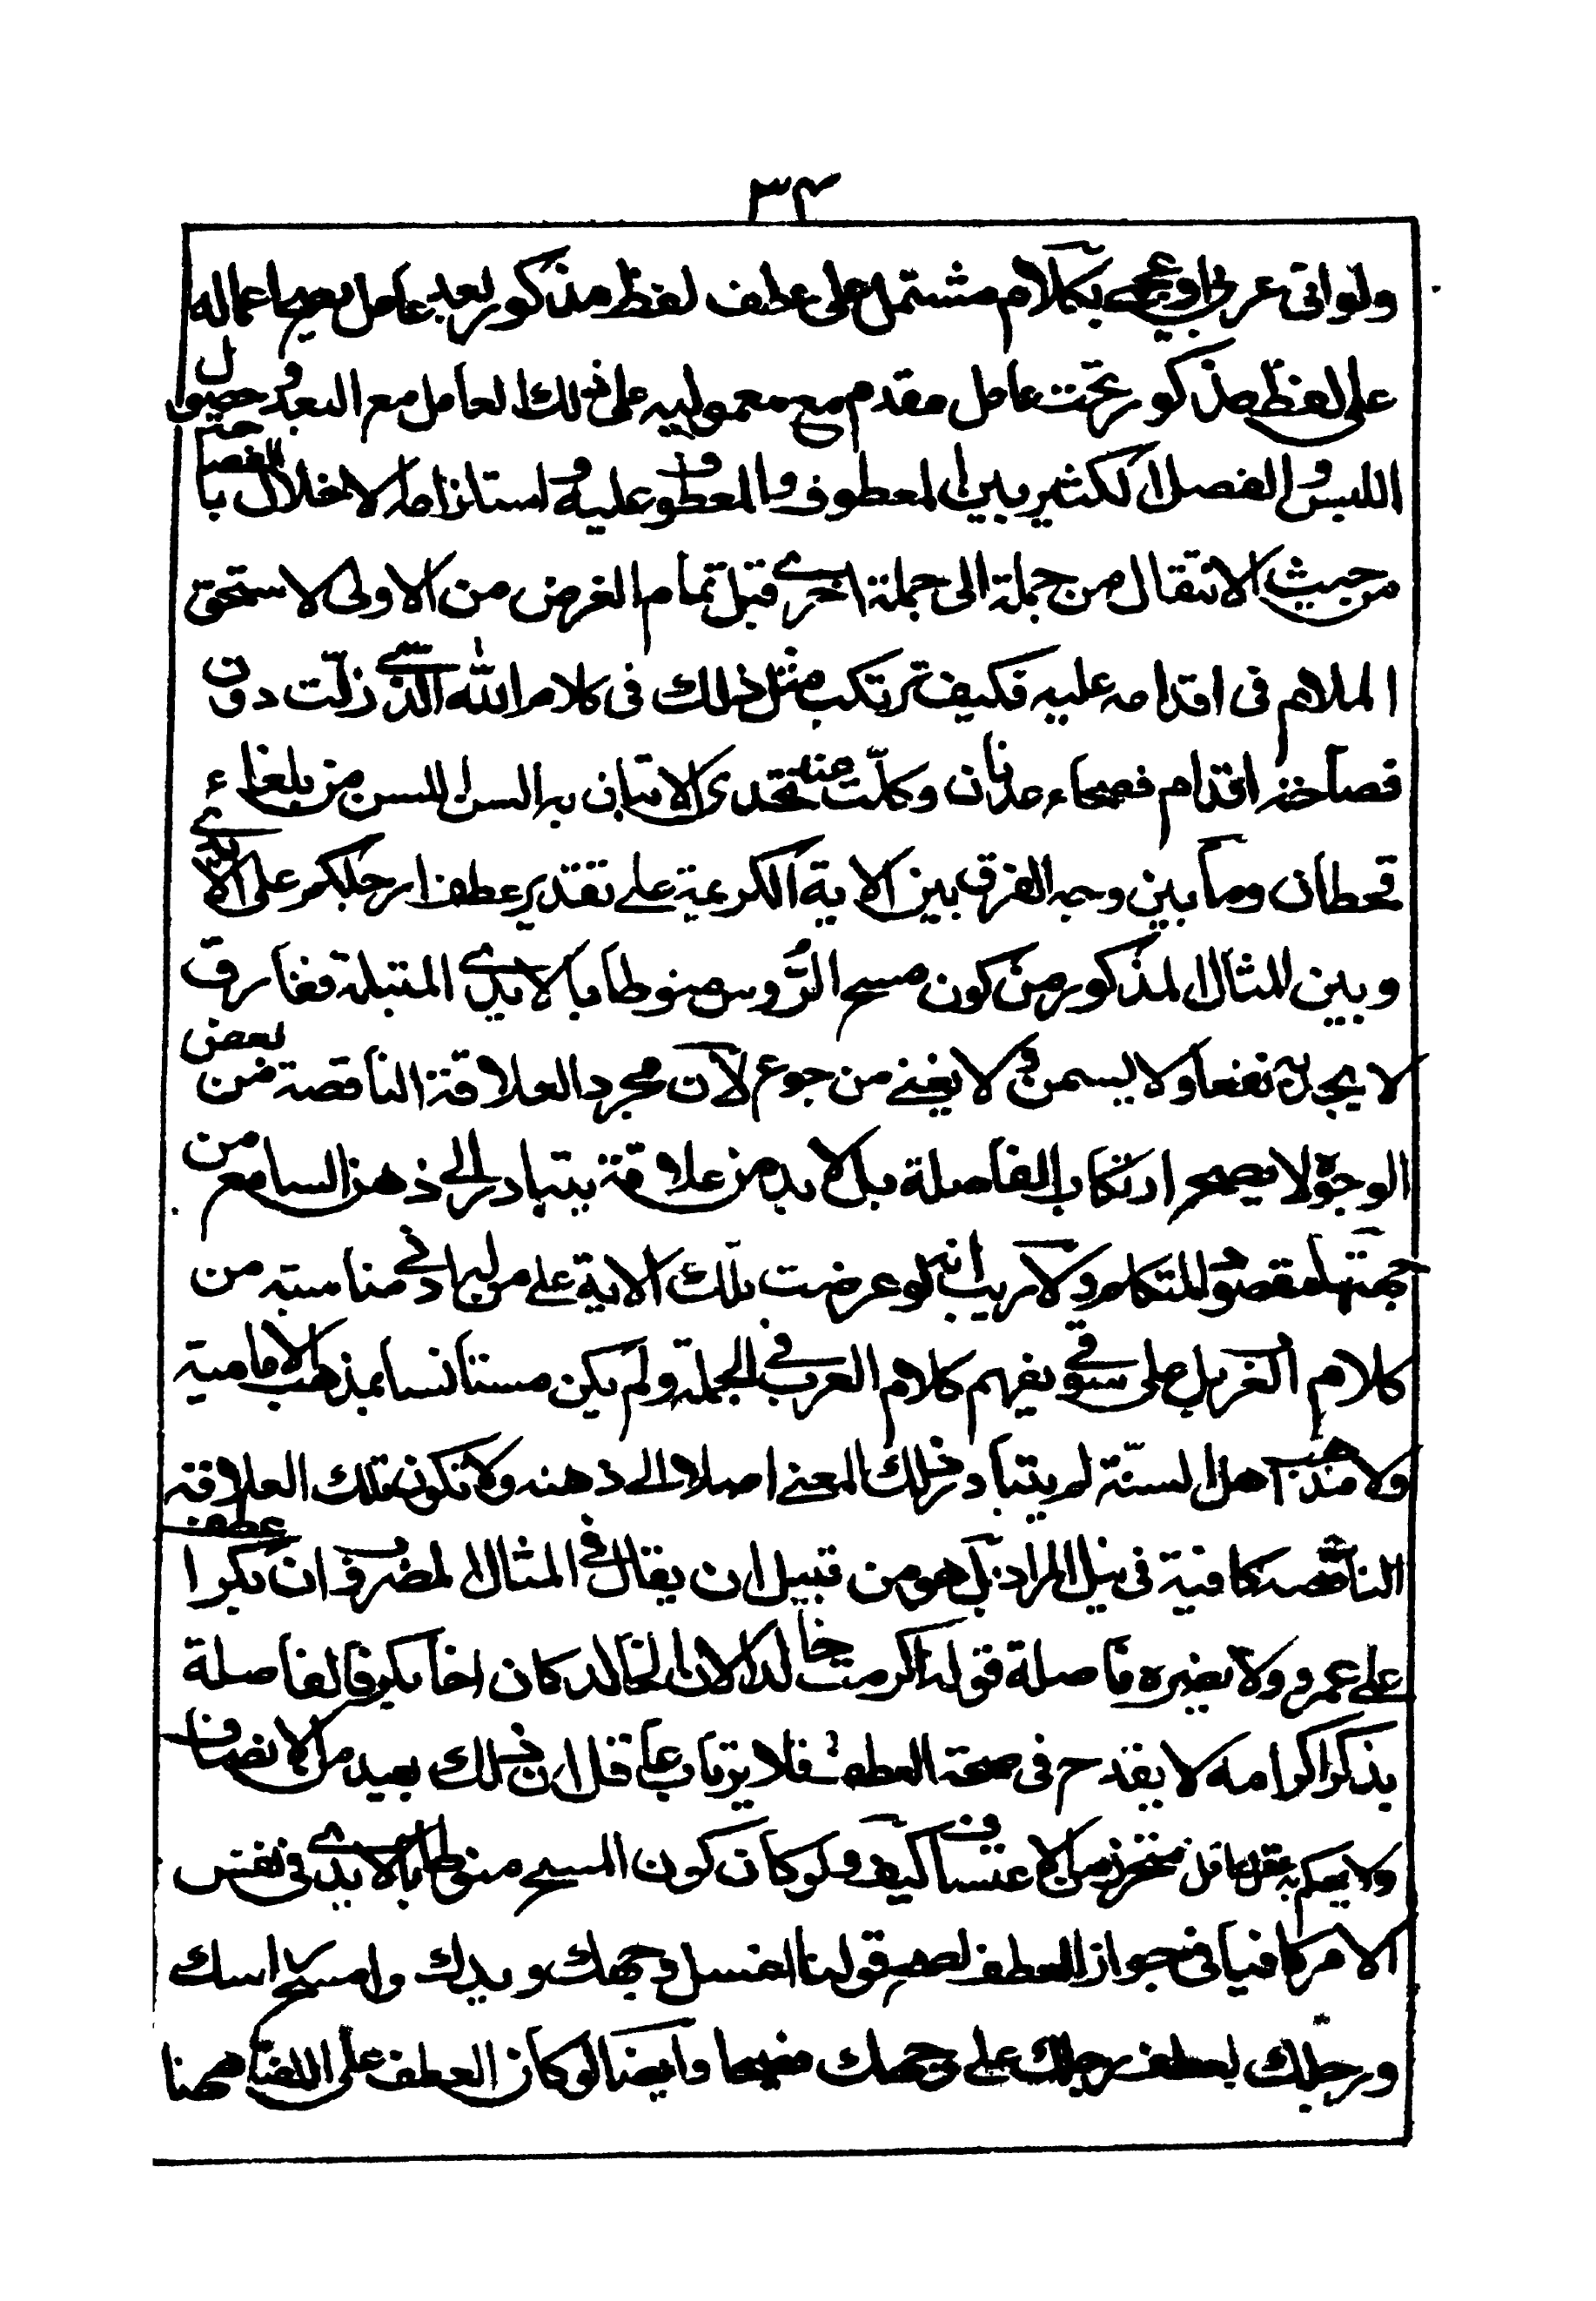 ٣٤
ولو اتى عربي او عجمي بكلام مشتمل على عطف لفظ مذكور بعد عامل يصح اعماله
على لفظ مذكور تحت عامل مقدم مع معموليه على ذلك العامل مع البعد و حصول
اللبس و الفصل الكثير بين المعطوف و المعطوف عليه و استلزامه الاخلال بالفصاحة
من حيث الانتقال من جملة الى جملة اخرى قبل تمام الغرض من الاولى لاستحق
الملام فى اقدامه عليه فكيف ترتكب مثل ذلك فى كلام الله الذى زلت دون
فصاحته اقدام فصحاء عدنان وكلّت عند تحدى الاتيان به السن اللسن من بلغاء
قحطان وما بين وجه الفرق بين الاية الكريمة على تقدير عطف ارجلكم على الايدى
وبين المثال المذكور من كون مسح الرؤس منوطا بالايدى المبتلة ففارق
لا يجدى نفعا ولا يسمن ولا يغنى من جوع لان مجرد العلاقة الناقصة من بعض
الوجوه لا يصحح ارتكاب الفاصلة بل لا بد من علاقة يتبادر الى ذهن السامع من
جهتها مقصود المتكلم ولا ريب انه لو عرضت تلك الاية على من له ادنى مناسبته من
كلام العرب على سوقى يفهم كلام العرب فى الجملة ولم يكن مستانسا بمذهب الامامية
ولا مذهب اهل السنّة لم يتبادر ذلك المعنى اصلا الى ذهنه ولا تكون تلك العلاقة
الناقصة كافية فى نيل المراد بل هو من قبيل ان يقال فى المثال المضروف ان عطف بكرا
على عمرو ولا يضره فاصلة قوله اكرمت خالدا لان الخالد كان اخا بكر فالفاصلة
بذكر اكرامه لا يقدح فى صحة العطف فلا يرتاب عاقل ان ذلك بعيد من الانصاف
ولا يحكم به عقل عاقل متحرز من الاعتساف كيف و لو كان كون المسح منوطا بالايدى فى نفس
الامر كافيا فى جواز العطف لصح قولنا اغسل وجهك ويدك وامسح راسك
ورجلك بعطف رجلك على وجهك فصيحا وايضا لو كان العطف على اللفظ ههنا